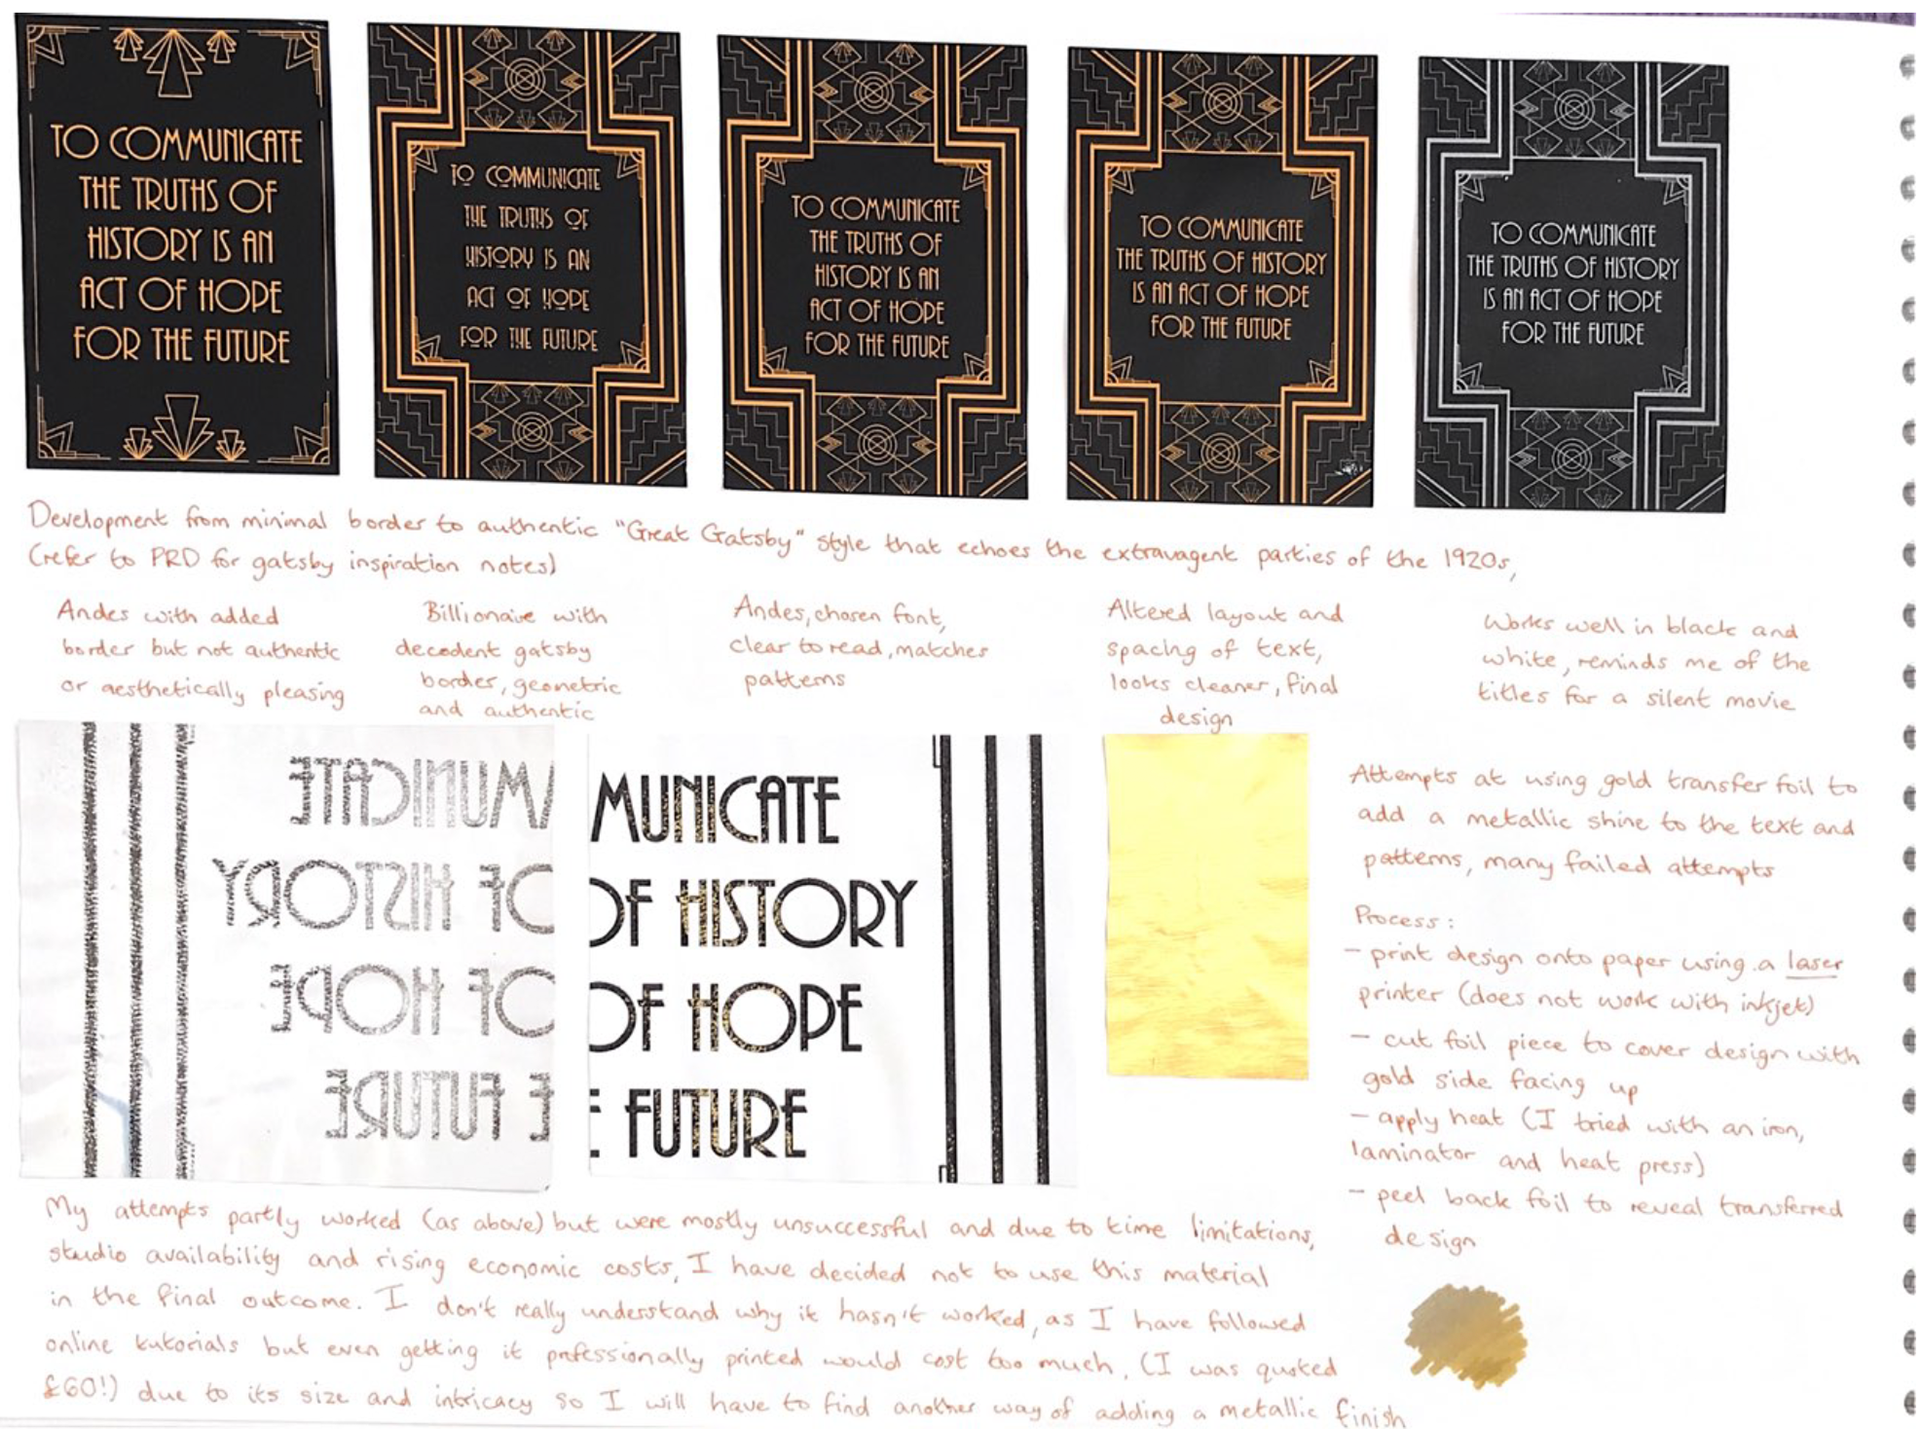 TO COMMUNICATE
THE TRUTHS OF
HISTORY IS AN
ACT OF HOPE
FOR THE FUTURE
TO COMMUNICATE
THE TRUTHS OF
HISTORY IS AN
ACT OF HOPE
FOR THE FUTURE
TO COMMUNICATE
THE TRUTHS OF
HISTORY IS AN
ACT OF HOPE
FOR THE FUTURE
TO COMMUNICATE
THE TRUTHS OF HISTORY
IS AN ACT OF HOPE
FOR THE FUTURE
TO COMMUNICATE
THE TRUTHS OF HISTORY
IS AN ACT OF HOPE
FOR THE FUTURE
Development from minimal border to authentic "Great Gatsby" style that echoes the extravagent parties of the 1920s,
(refer to PRD for gatsby inspiration notes)
Andes with added
border but not authentic
or aesthetically pleasing
Billionaire with
decedent gatsby
border, geometric
and authentic
Andes, chosen font,
clear to read, matches
patterns
Altered layout and
spacing of text,
looks cleaner, final
design
Works well in black and
white, reminds me of the
titles for a silent movie
MUNICATE
OF HISTORY
OF HOPE
E FUTURE
MUNICATE
OF HISTORY
OF HOPE
E FUTURE
Attempts at using gold transfer foil to
add a metallic shine to the text and
patterns, many failed attempts
Process:
- print design onto paper using a laser
printer (does not work with inkjet)
- cut foil piece to cover design with
gold side facing up
- apply heat (I tried with an iron,
laminator and heat press)
- peel back foil to reveal transferred
design
My attempts partly worked (as above) but were mostly unsuccessful and due to time limitations,
studio availability and rising economic costs, I have decided not to use this material
in the final outcome. I don't really understand why it hasn't worked, as I have followed
online tutorials but even getting it professionally printed would cost too much, (I was quoted
£60!) due to its size and intricacy so I will have to find another way of adding a metallic finish